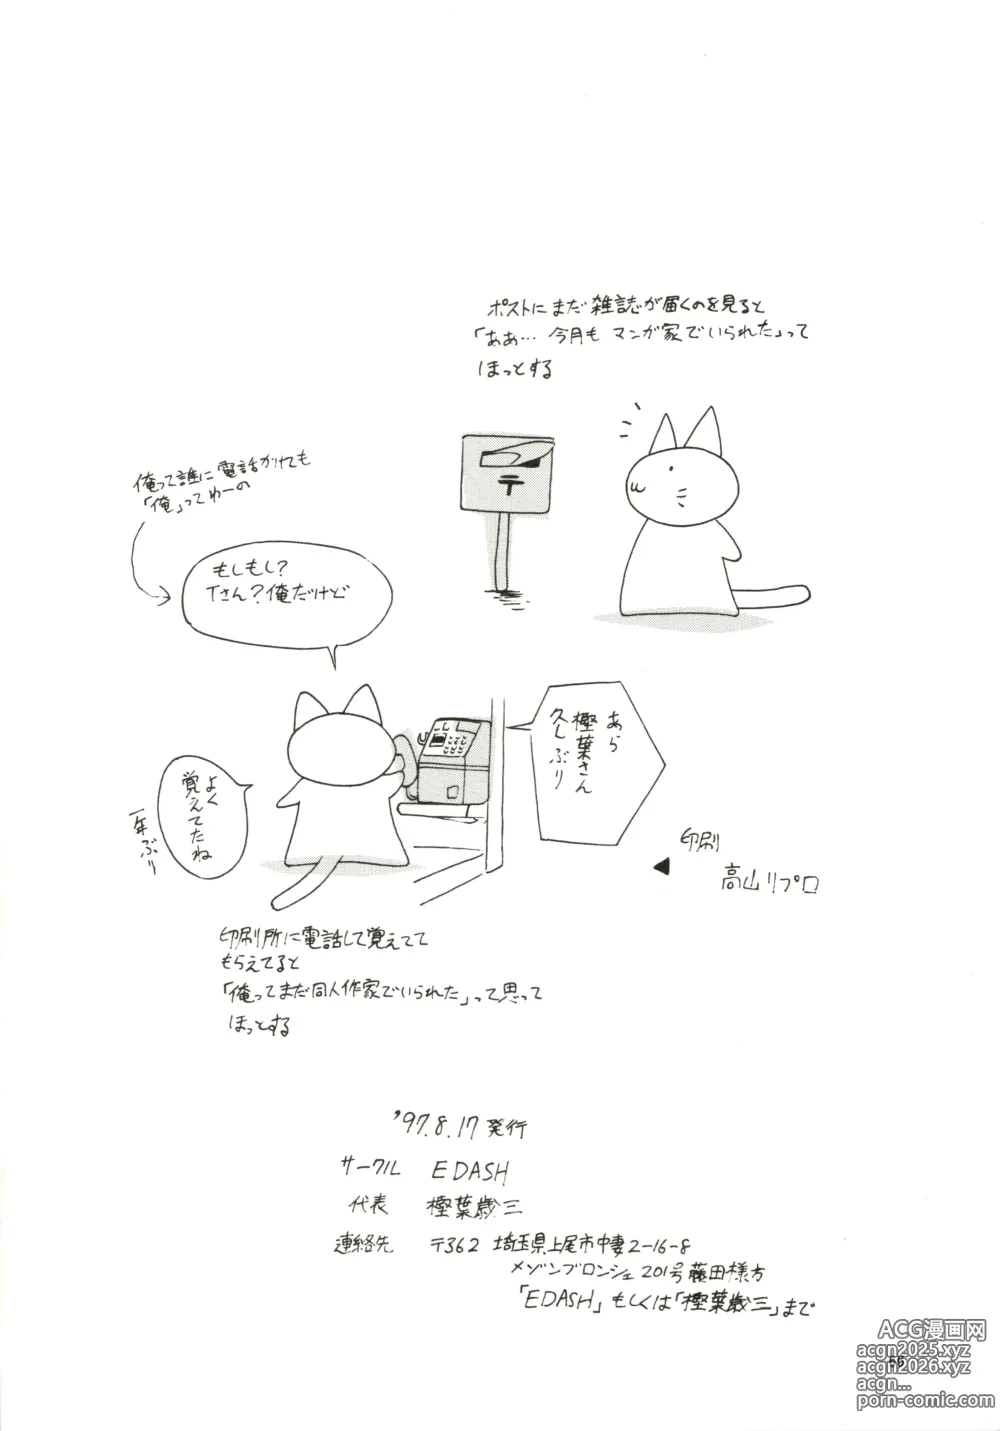 ポストにまだ雑誌が届くのを見ると
「ああ… 今月も マンガ家でいられた」って
ほっとする
俺って誰に電話かけても
「俺」ってゆーの
もしもし?
Tさん?俺だけど
あら
樫葉さん
久しぶり
よく
覚えてたね
一年ぶり
印刷
高山リプロ
印刷所に電話して覚えてて
もらえてると
「俺ってまだ同人作家でいられた」って思って
ほっとする
'97.8.17 発行
サークル EDASH
代表 樫葉歳三
連絡先 〒362 埼玉県上尾市中妻2-16-8
メゾンブロンシェ 201号 藤田様方
「EDASH」もしくは「樫葉歳三」まで
56
ACG漫画网
acgn2025.xyz
acgn2026.xyz
acgn...
porn-comic.com